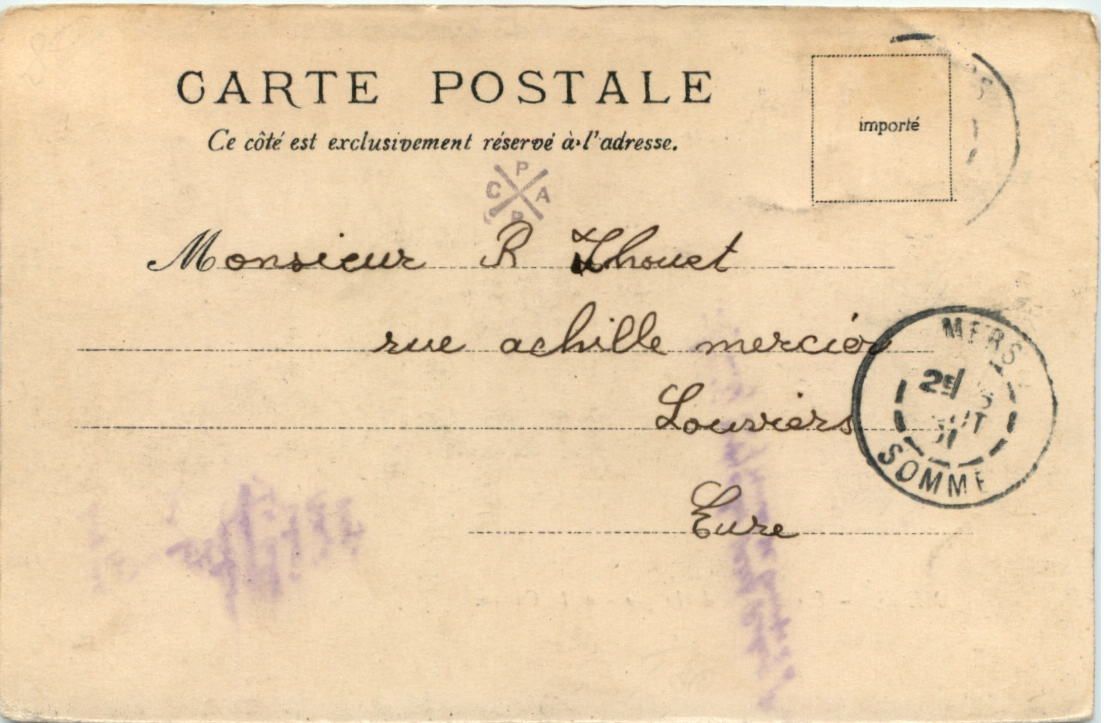 CARTE POSTALE
Ce côté est exclusivement réservé à l'adresse.
importé
C P A
Monsieur R Thouet
rue achille mercier
Louviers
Eure
MERS
2E
SOMME